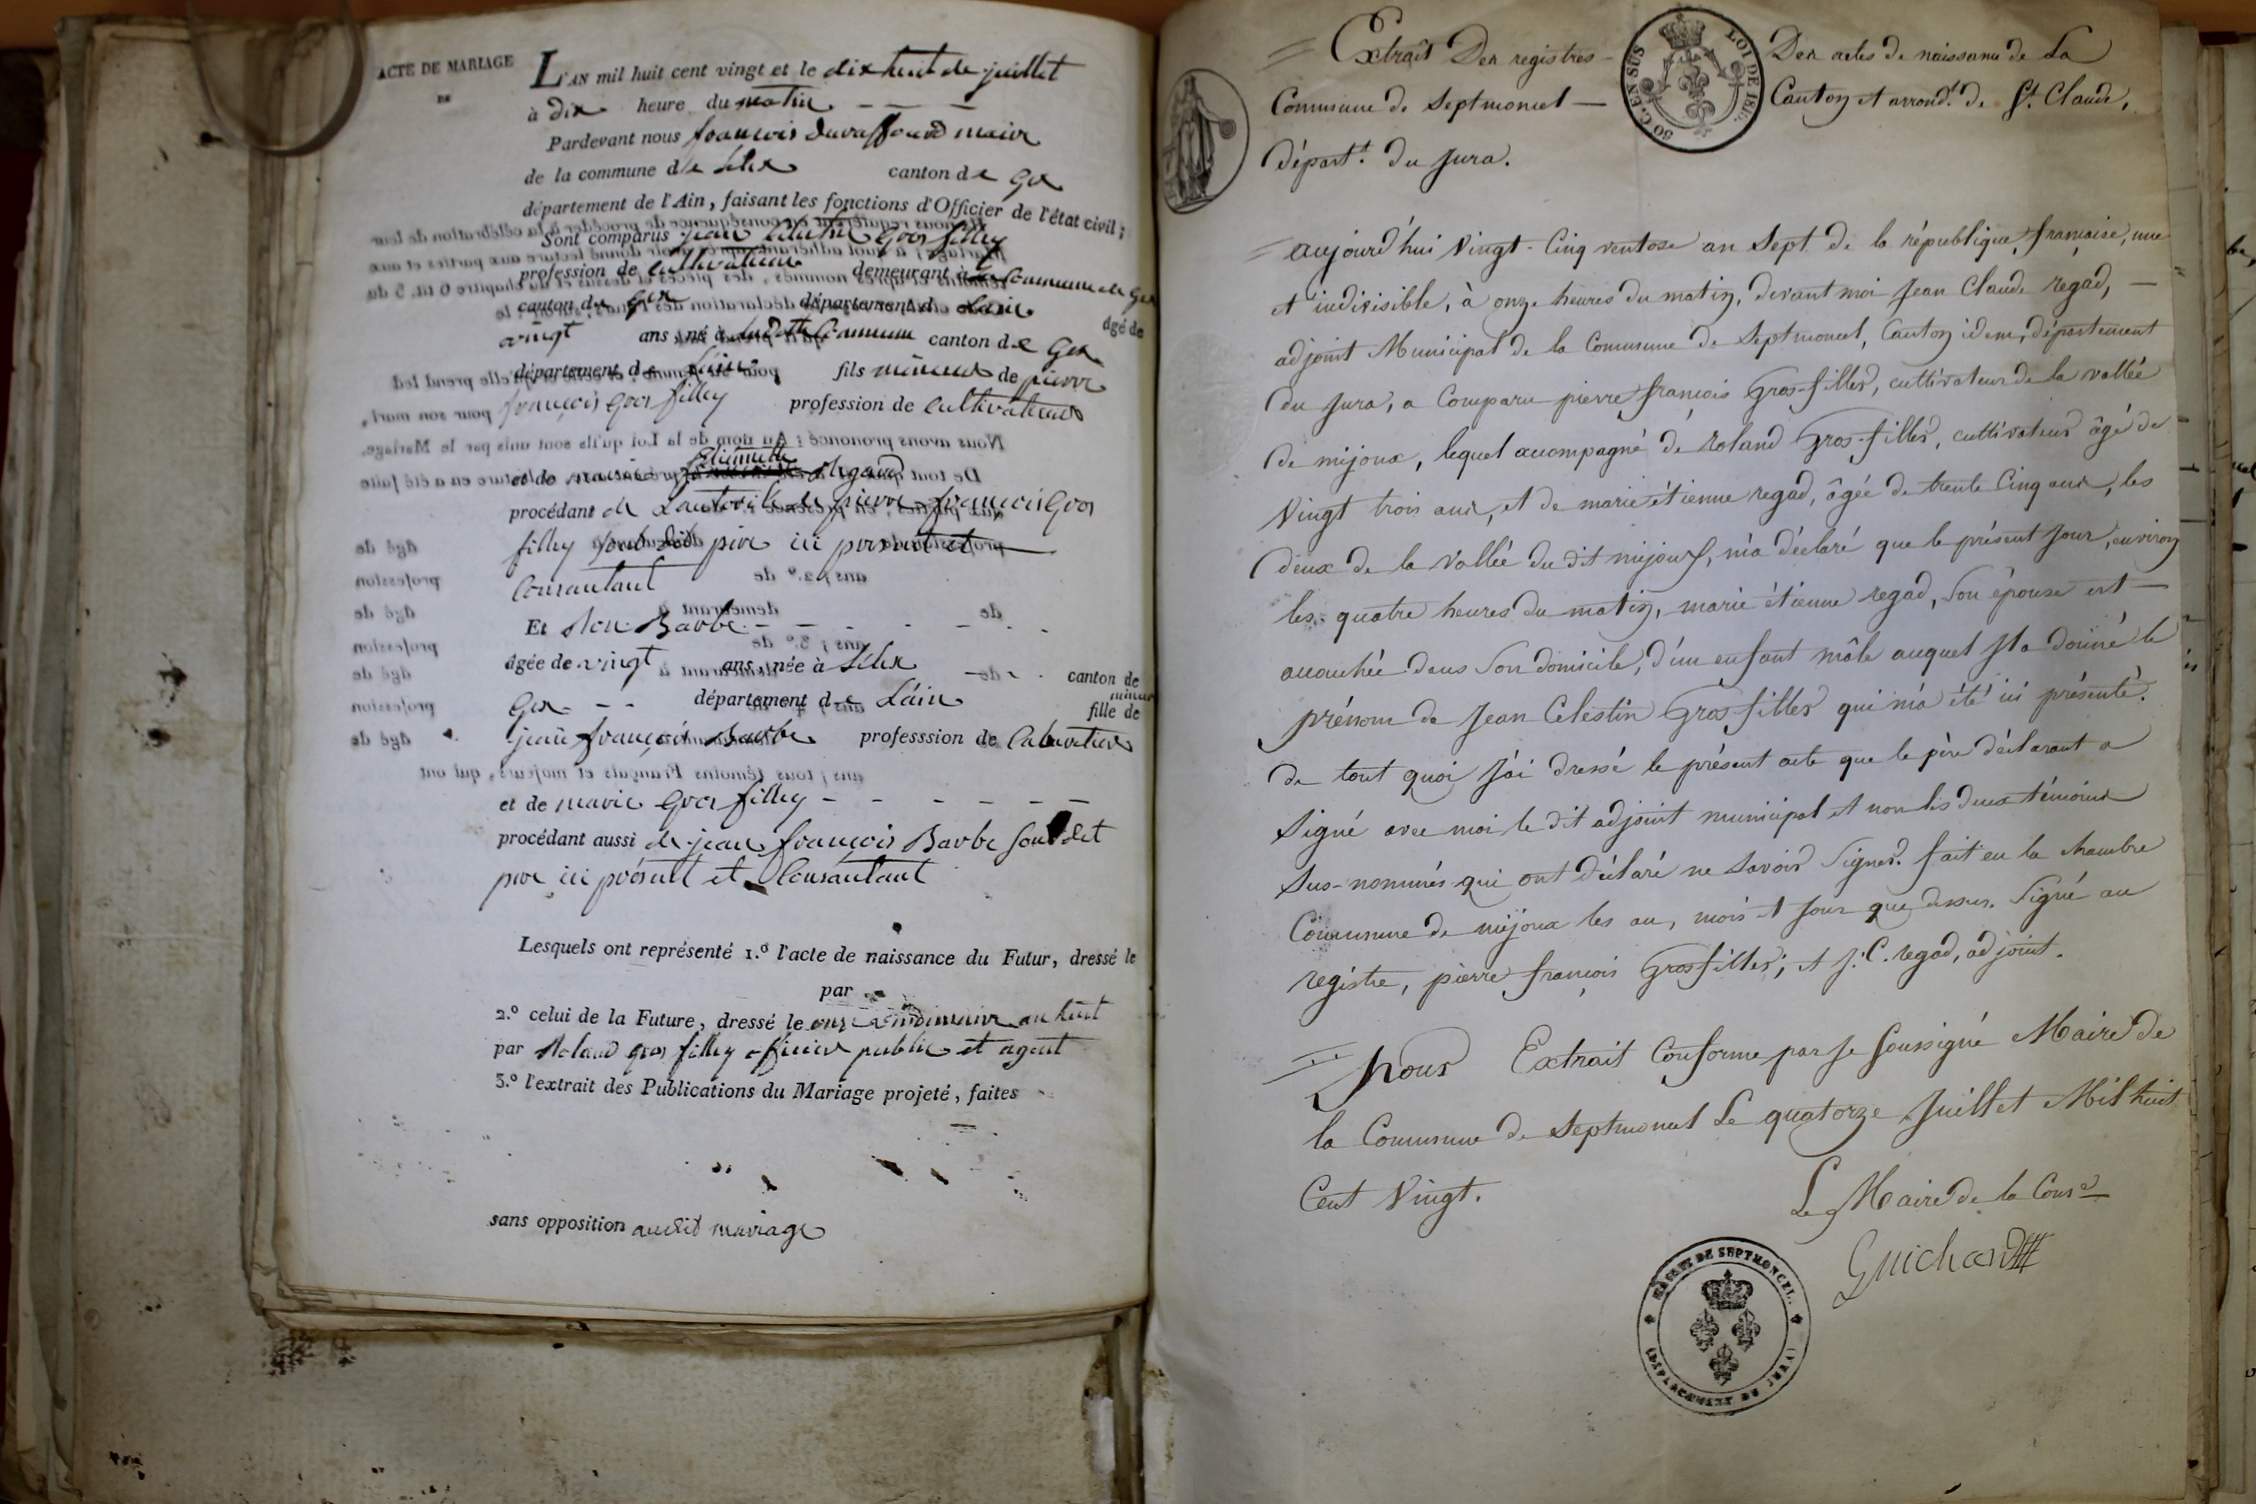 ACTE DE MARIAGE
DE
L'AN mil huit cent vingt et le dix huit de juillet
à dix heure du matin
Pardevant nous françois Duraffourd maire
de la commune de Lelex canton de Gex
département de l'Ain, faisant les fonctions d'Officier de l'état civil;
Sont comparus jean Celestin Gros filley
profession de cultivateur demeurant à la Commune de Gex
canton de Gex département de Lain
âgé de
vingt ans, né à la ditte Commune canton de Gex
département de Lain fils mineur de pierre
françois gros filley profession de cultivateur
et de marie Etiennette Regad
procédant de Lautorité de pierre françois Gros
filley sondit père ici présent et
Consantant
Et Barbe
âgée de vingt ans, née à Lelex canton de
Gex département de Lain mineur fille de
jean françois Barbe professsion de Cultivateur
et de marie Gros filley
procédant aussi de jean françois Barbe sondit
pere ici présent et Consantant
Lesquels ont représenté 1.º l'acte de naissance du Futur, dressé le
par
2.º celui de la Future, dressé le onze vendemiaire an huit
par Roland gros filley officier public et agent
3.º l'extrait des Publications du Mariage projeté, faites
sans opposition audit mariage
Extrait Des registres Des actes de naissance de La
Commune de Septmoncel Canton et arrond.t de St. Claude,
Départ.t du Jura.
50 C. EN SUS
LOI DE 1816
aujourd'hui Vingt-Cinq ventose an Sept de la république française, une
et indivisible, à onze heures du matin, devant moi Jean Claude régad,
adjoint Municipal de la Commune de Septmoncel, Canton idem, département
du Jura, a Comparu pierre françois Gros-filley, cultivateur de la vallée
de mijoux, lequel accompagné de roland Gros-filley, cultivateur âgé de
Vingt trois ans, et de marie étienne regad, âgée de trente Cinq ans, les
deux de la Vallée du dit mijoux, m'a déclaré que le présent Jour, environ
les quatre heures du matin, marie étienne regad, son épouse est
accouchée dans son domicile, d'un enfant mâle auquel Il a donné le
prénom de Jean Celestin Gros-filley qui m'a été ici présenté.
de tout quoi J'ai dressé le présent acte que le père déclarant a
Signé avec moi le dit adjoint municipal et non les deux témoins
Sus-nommés qui ont déclaré ne savoir Signer. fait en la chambre
Commune de mijoux les an, mois et Jour que dessus. Signé au
registre, pierre françois Grosfilley; et J. C. regad, adjoint.
Pour Extrait Conforme par Je Soussigné Maire de
la Commune de Septmoncel Le quatorze Juillet Mil huit
Cent Vingt.
Le Maire de la Com.e
Guichard
MAIRIE DE SEPTMONCEL
(DÉPARTEMENT DU JURA)